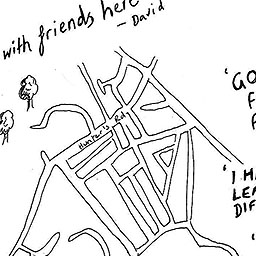 with friends here
- David
Hunters Rd
'GO
F
'I HA
LEA
DIF
'